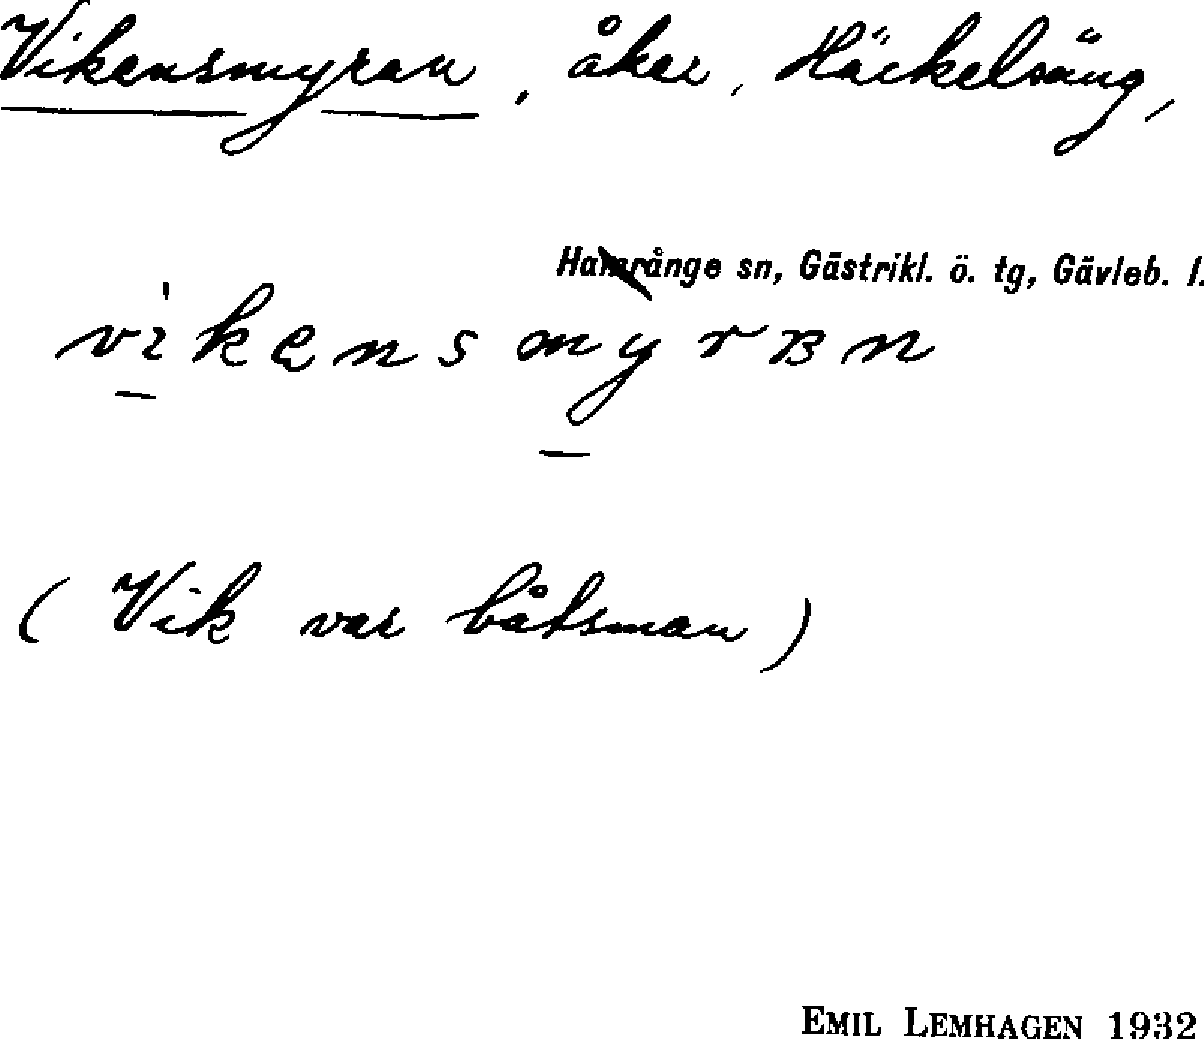 Vikensmyran, åker, Häckelsäng,
Hamrånge sn, Gästrikl. ö. tg, Gävleb. l.
vikensmyrвn
(Vik var båtsman)
EMIL LEMHAGEN 1932